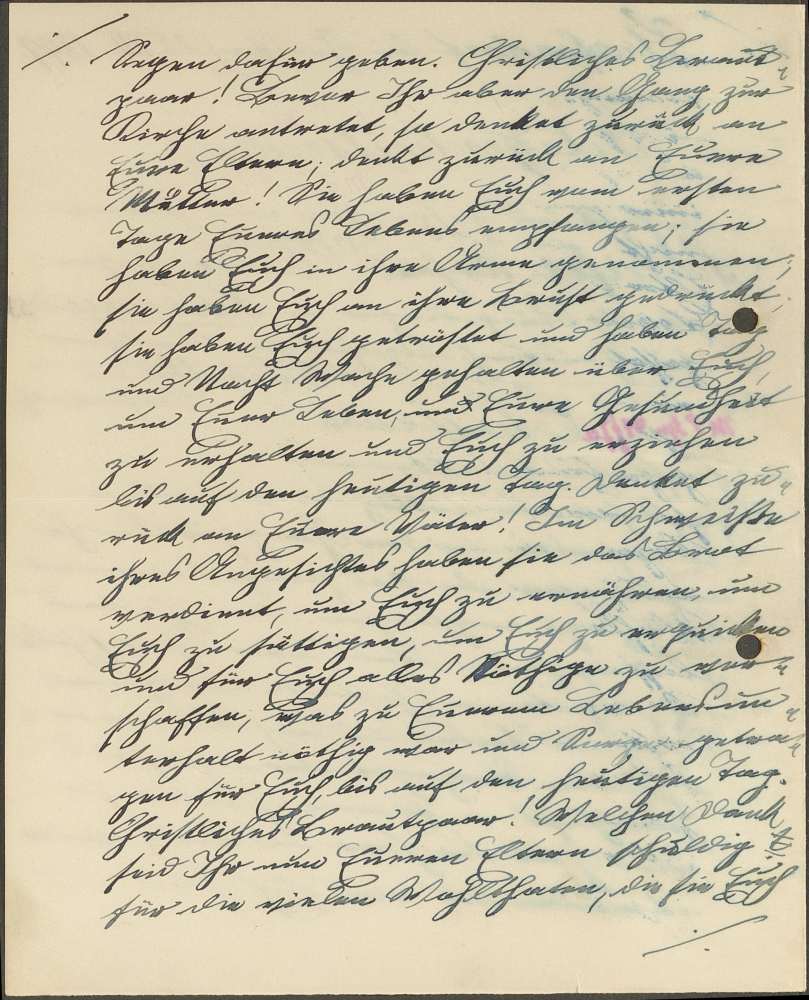 ./. Segen dafür geben. Christliches Braut-
paar! Bevor Ihr aber den Gang zur
Kirche antretet, so denket zurück an
Euere Eltern; denkt zurück an Euere
Mütter! Sie haben Euch vom ersten
Tage Eueres Lebens empfangen; sie
haben Euch in ihre Arme genommen;
sie haben Euch an ihre Brust gedrückt,
sie haben Euch getröstet und haben Tag
und Nacht Wache gehalten über Euch,
um Euer Leben, und Eure Gesundheit
zu erhalten und Euch zu erziehen
bis auf den heutigen Tag. Denket zu-
rück an Euere Väter! Im Schweiße
ihres Angesichtes haben sie das Brot
verdient, um Euch zu ernähren, um
Euch zu sättigen, um Euch zu erquicken
und für Euch alles Nöthige zu ver-
schaffen, was zu Euerem Lebensun-
terhalt nöthig war und Sorge getra-
gen für Euch, bis auf den heutigen Tag.
Christliches Brautpaar! Welchen Dank
seid Ihr nun Eueren Eltern schuldig
für die vielen Wohlthaten, die sie Euch
./.